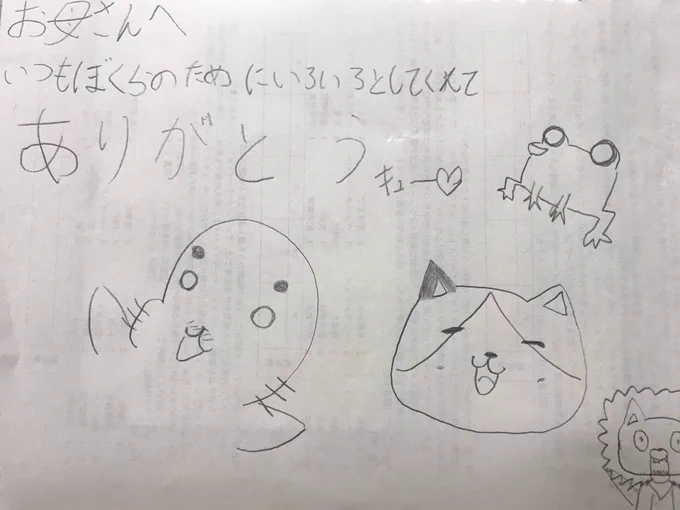 お母さんへ
いつもぼくらのためにいろいろとしてくれて
ありがとう
キュー♡